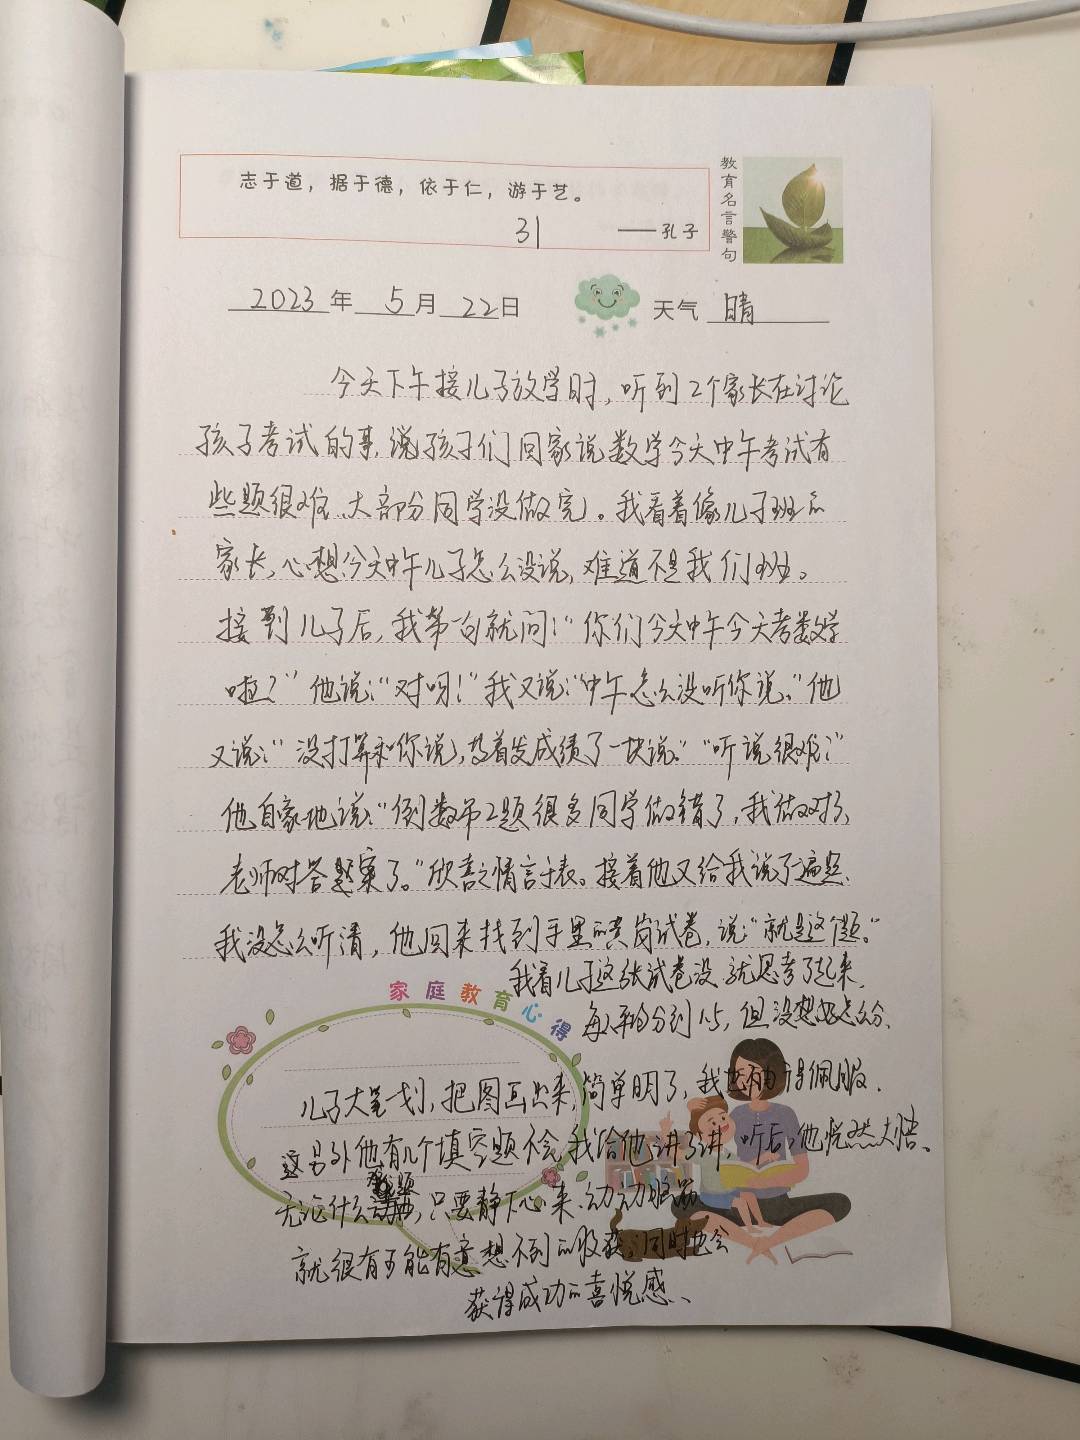 志于道，据于德，依于仁，游于艺。
31 ——孔子
教育名言警句
2023年5月22日 天气 晴
今天下午接儿子放学时，听到2个家长在讨论
孩子考试的事，说孩子们回家说数学今天中午考试有
些题很难、大部分同学没做完。我看着像儿子班的
家长，心想今天中午儿子怎么没说，难道不是我们班。
接到儿子后，我第一句就问：“你们今天中午今天考数学
啦？”他说：“对呀！”我又说：“中午怎么没听你说。”他
又说：“没打算和你说，等着发成绩了一块说。”“听说很难；”
他自豪地说：“倒数第2题很多同学做错了，我做对了，
老师对答题案了。”欣喜之情言于表。接着他又给我说了遍题，
我没怎么听清，他回来找到手里的试卷，说“就是这个题。”
我看儿子这张试卷没，就思考了起来，
每人平均分到1.5，但没想起怎么分、
家庭教育心得
儿子大笔一划，把图画出来，简单明了，我 得佩服．
这另外他有几个填空题不会，我给他讲了讲，听后，他恍然大悟、
无论什么难题，只要静下心来、动动脑筋
就很有可能有意想不到的收获。同时也会
获得成功的喜悦感、